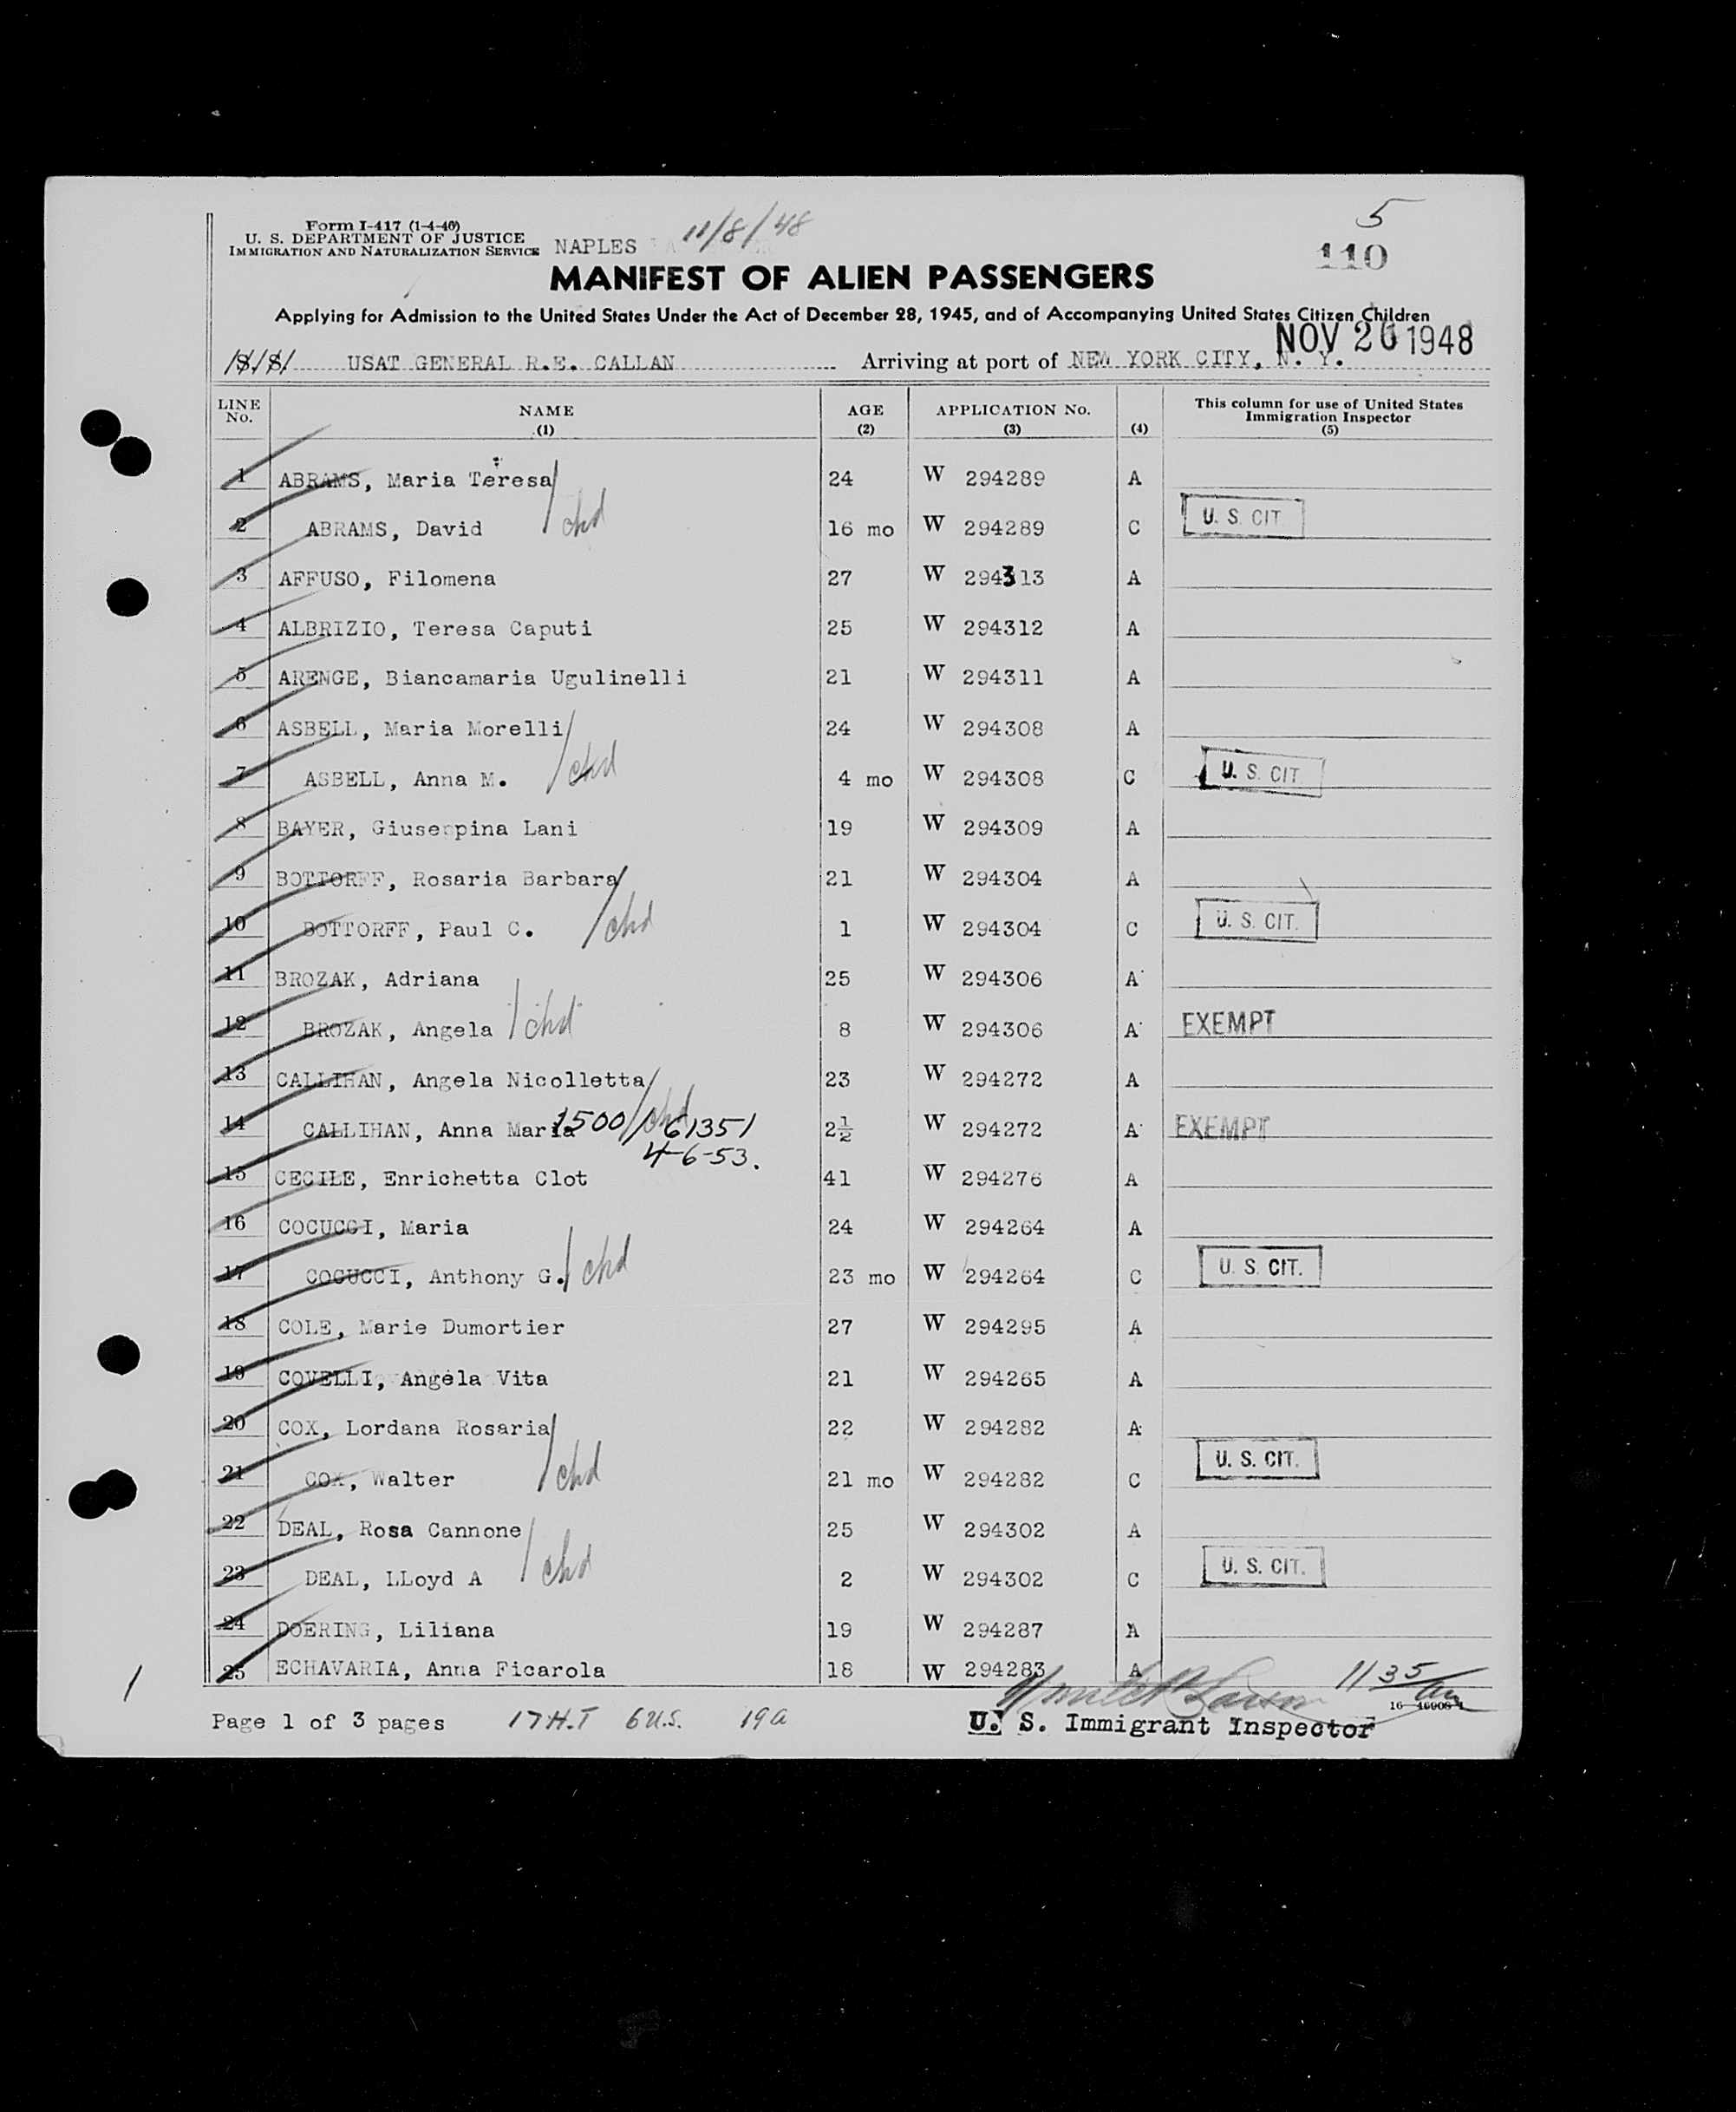 5
Form I-417 (1-4-46)
U. S. DEPARTMENT OF JUSTICE
IMMIGRATION AND NATURALIZATION SERVICE NAPLES 11/8/48
110
MANIFEST OF ALIEN PASSENGERS
Applying for Admission to the United States Under the Act of December 28, 1945, and of Accompanying United States Citizen Children
NOV 26 1948
USAT GENERAL R.E. CALLAN Arriving at port of NEW YORK CITY, N. Y.
LINE No. NAME (1) AGE (2) APPLICATION No. (3) (4) This column for use of United States Immigration Inspector (5)
1 ABRAMS, Maria Teresa 24 W 294289 A
2 ABRAMS, David chd 16 mo W 294289 C U. S. CIT.
3 AFFUSO, Filomena 27 W 294313 A
4 ALBRIZIO, Teresa Caputi 25 W 294312 A
5 ARENGE, Biancamaria Ugulinelli 21 W 294311 A
6 ASBELL, Maria Morelli 24 W 294308 A
7 ASBELL, Anna M. chd 4 mo W 294308 C U. S. CIT.
8 BAYER, Giuseppina Lani 19 W 294309 A
9 BOTTORFF, Rosaria Barbara 21 W 294304 A
10 BOTTORFF, Paul C. chd 1 W 294304 C U. S. CIT.
11 BROZAK, Adriana 25 W 294306 A
12 BROZAK, Angela chd 8 W 294306 A EXEMPT
13 CALLIHAN, Angela Nicolletta 23 W 294272 A
14 CALLIHAN, Anna Maria 1500/61351 chd 2½ W 294272 A EXEMPT
4-6-53.
15 CECILE, Enrichetta Clot 41 W 294276 A
16 COCUCCI, Maria 24 W 294264 A
17 COCUCCI, Anthony G. chd 23 mo W 294264 C U. S. CIT.
18 COLE, Marie Dumortier 27 W 294295 A
19 COVELLI, Angela Vita 21 W 294265 A
20 COX, Lordana Rosaria 22 W 294282 A
21 COX, Walter chd 21 mo W 294282 C U. S. CIT.
22 DEAL, Rosa Cannone 25 W 294302 A
23 DEAL, LLoyd A chd 2 W 294302 C U. S. CIT.
24 DOERING, Liliana 19 W 294287 A
25 ECHAVARIA, Anna Ficarola 18 W 294283 A
11 35 am
16—46906-1
Page 1 of 3 pages 17 H.T 6 U.S. 19 a U. S. Immigrant Inspector